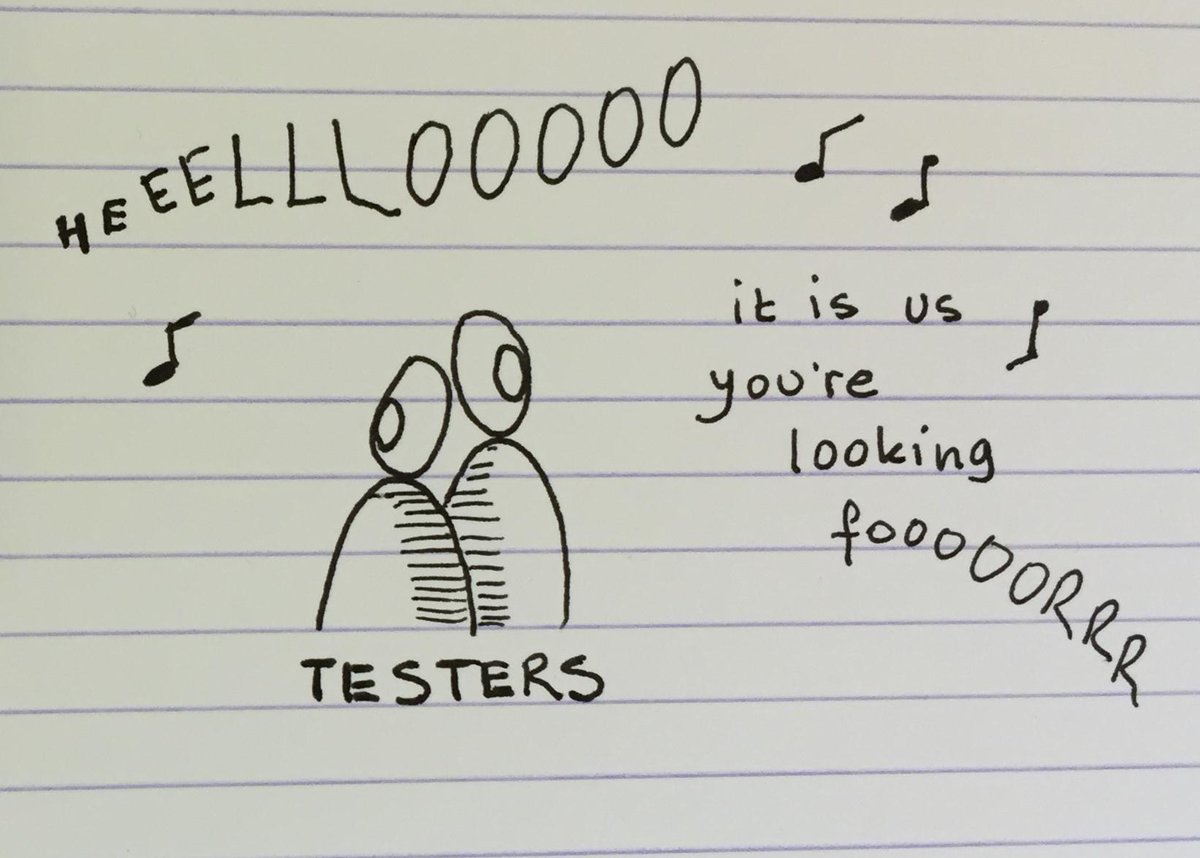 HEEELLLOOOOO
it is us
you're
looking
foooOORRR
TESTERS